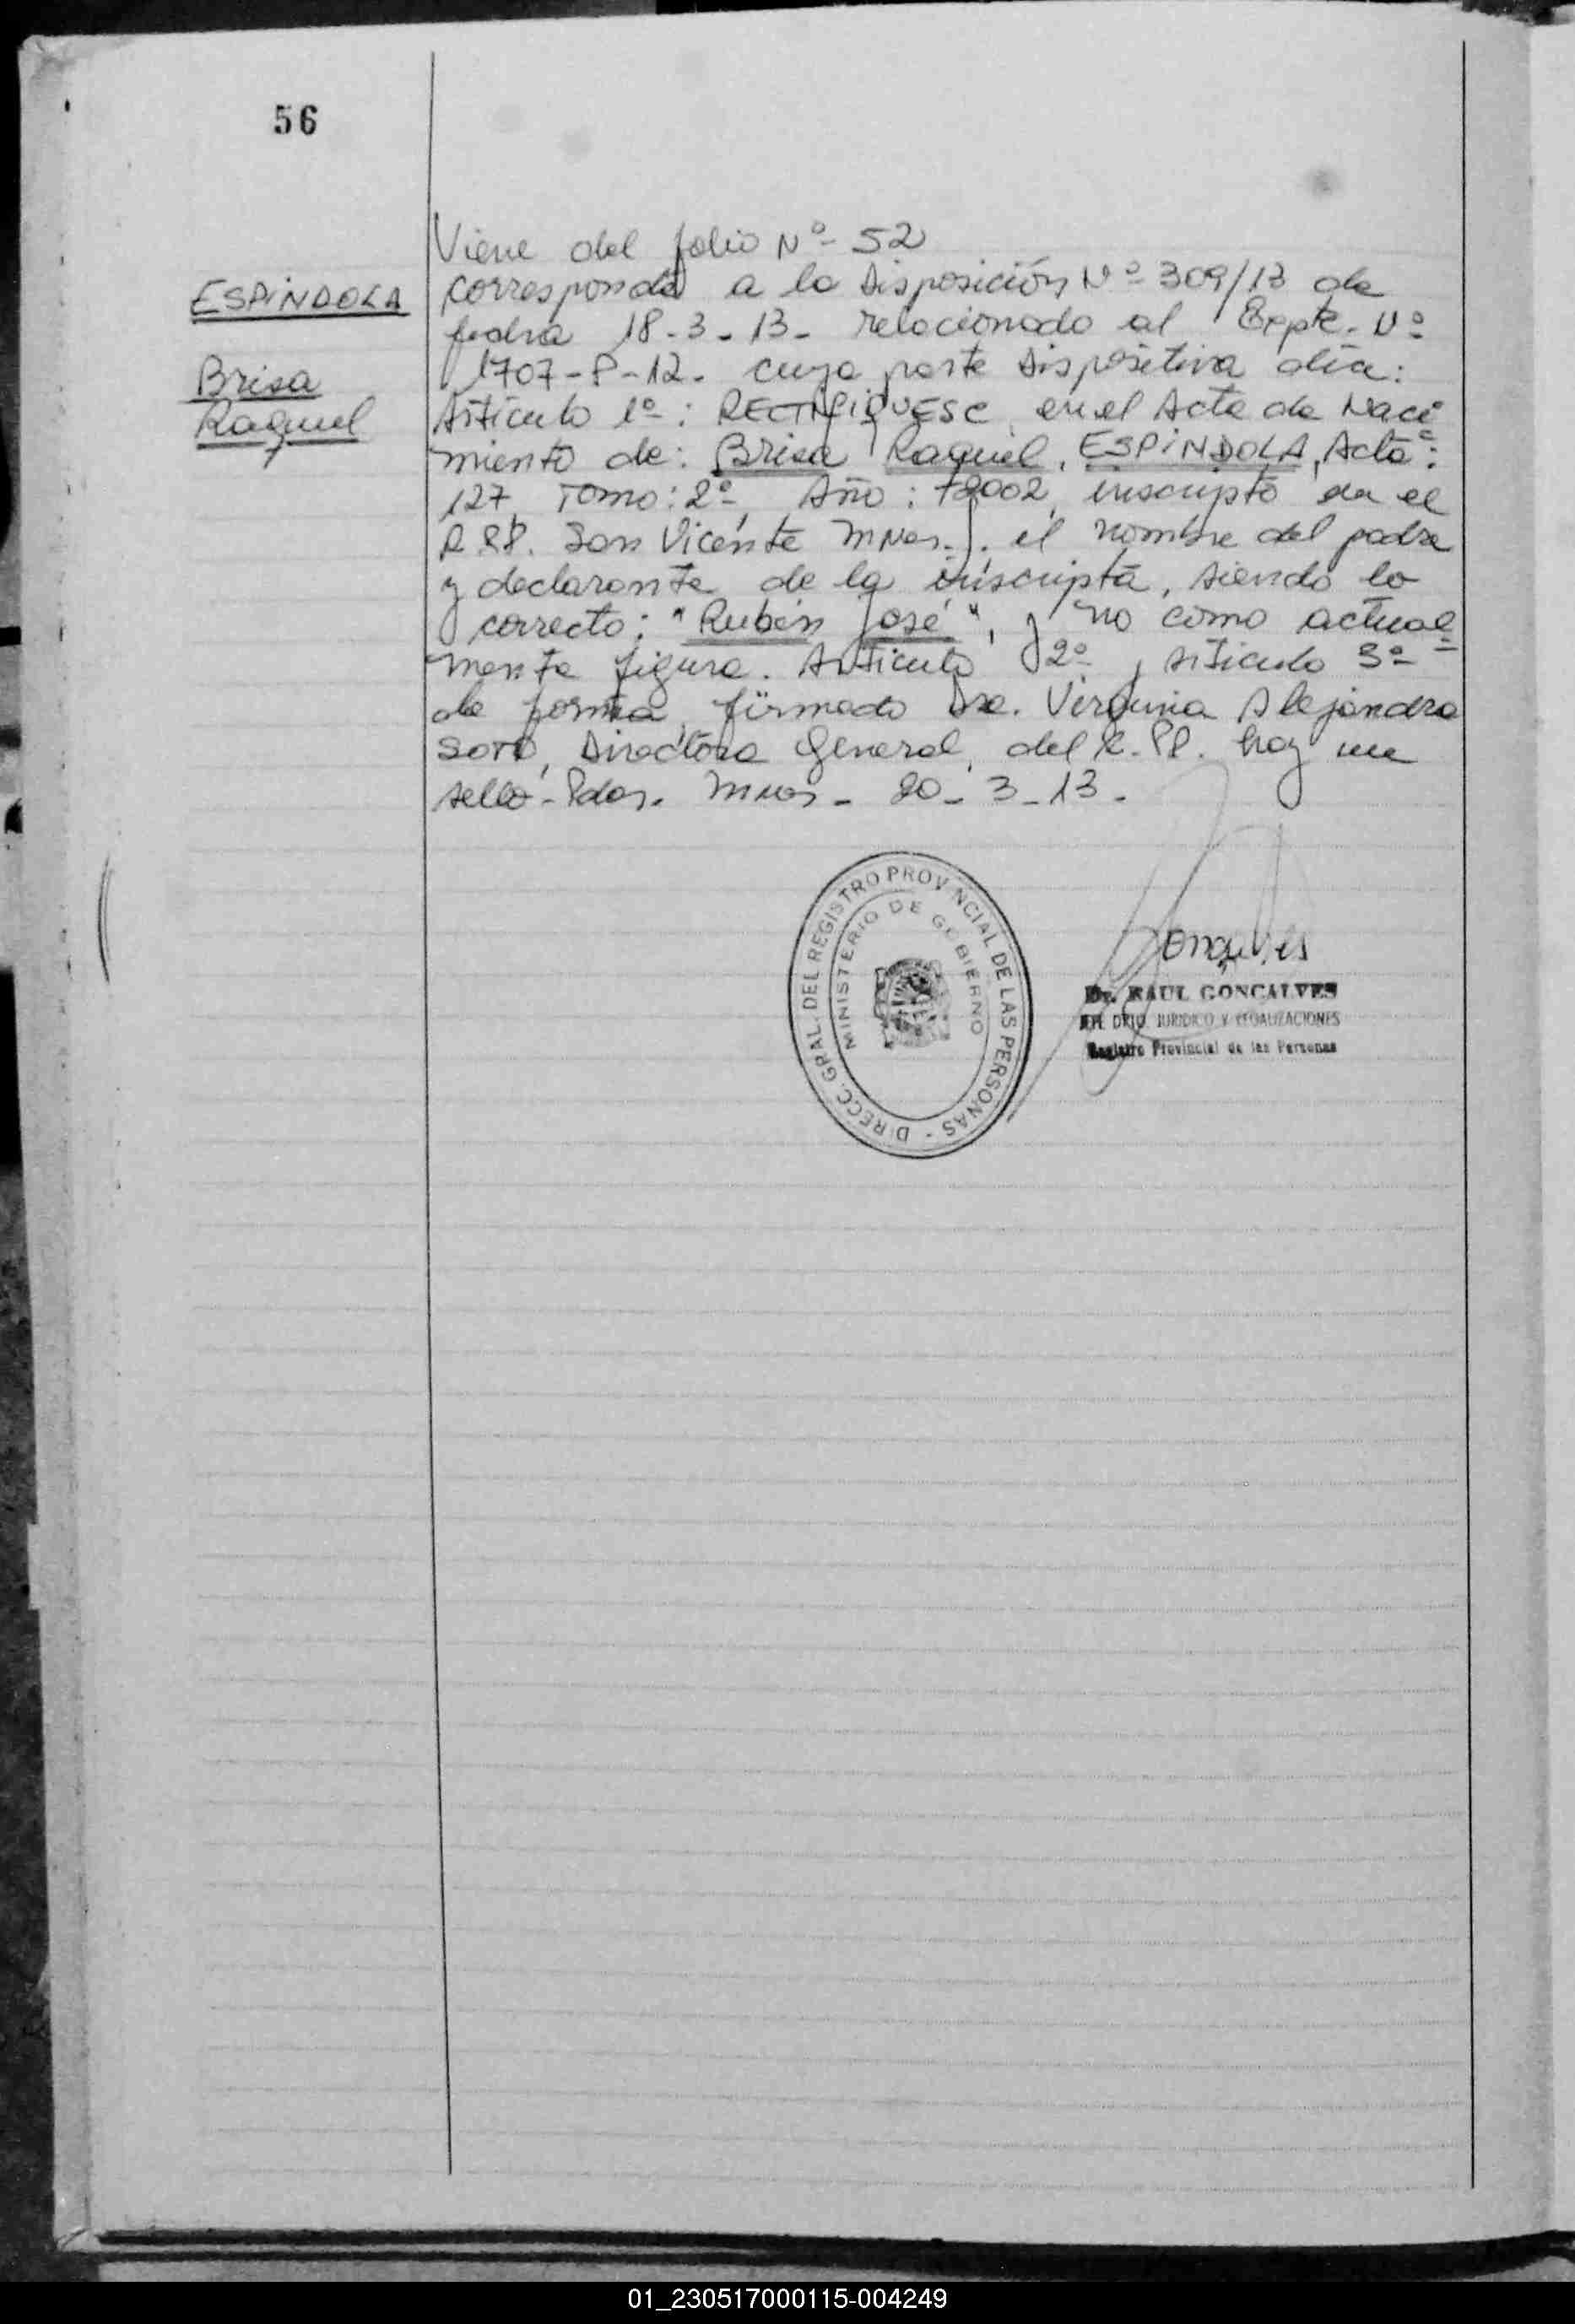 56
Viene del folio Nº- 52
ESPINDOLA
corresponde a la Disposición Nº- 309/13 de
fecha 18-3-13- relacionado al Expte. Nº
Brisa
1707-P-12. cuya parte dispositiva dice:
Raquel
Artículo 1º: RECTIFIQUESE en el Acta de Naci
miento de: Brisa Raquel, ESPINDOLA, Acta:
127, Tomo: 2º, Año: 2002, inscripto en el
R.PP. San Vicente Mnes. el nombre del padre
y declarante de la inscripta, siendo lo
correcto: "Rubén José", y no como actual
mente figura. Artículo 2º y artículo 3º
de forma, firmado Dra. Virginia Alejandra
Soto, Directora General, del R.PP. hay un
sello- Pdas. Mnes- 20-3-13.
DIRECC. GRAL. DEL REGISTRO PROVINCIAL DE LAS PERSONAS -
MINISTERIO DE GOBIERNO
Dr. RAUL GONCALVES
DPTO. JURIDICO Y LEGALIZACIONES
Registro Provincial de las Personas
01_230517000115-004249